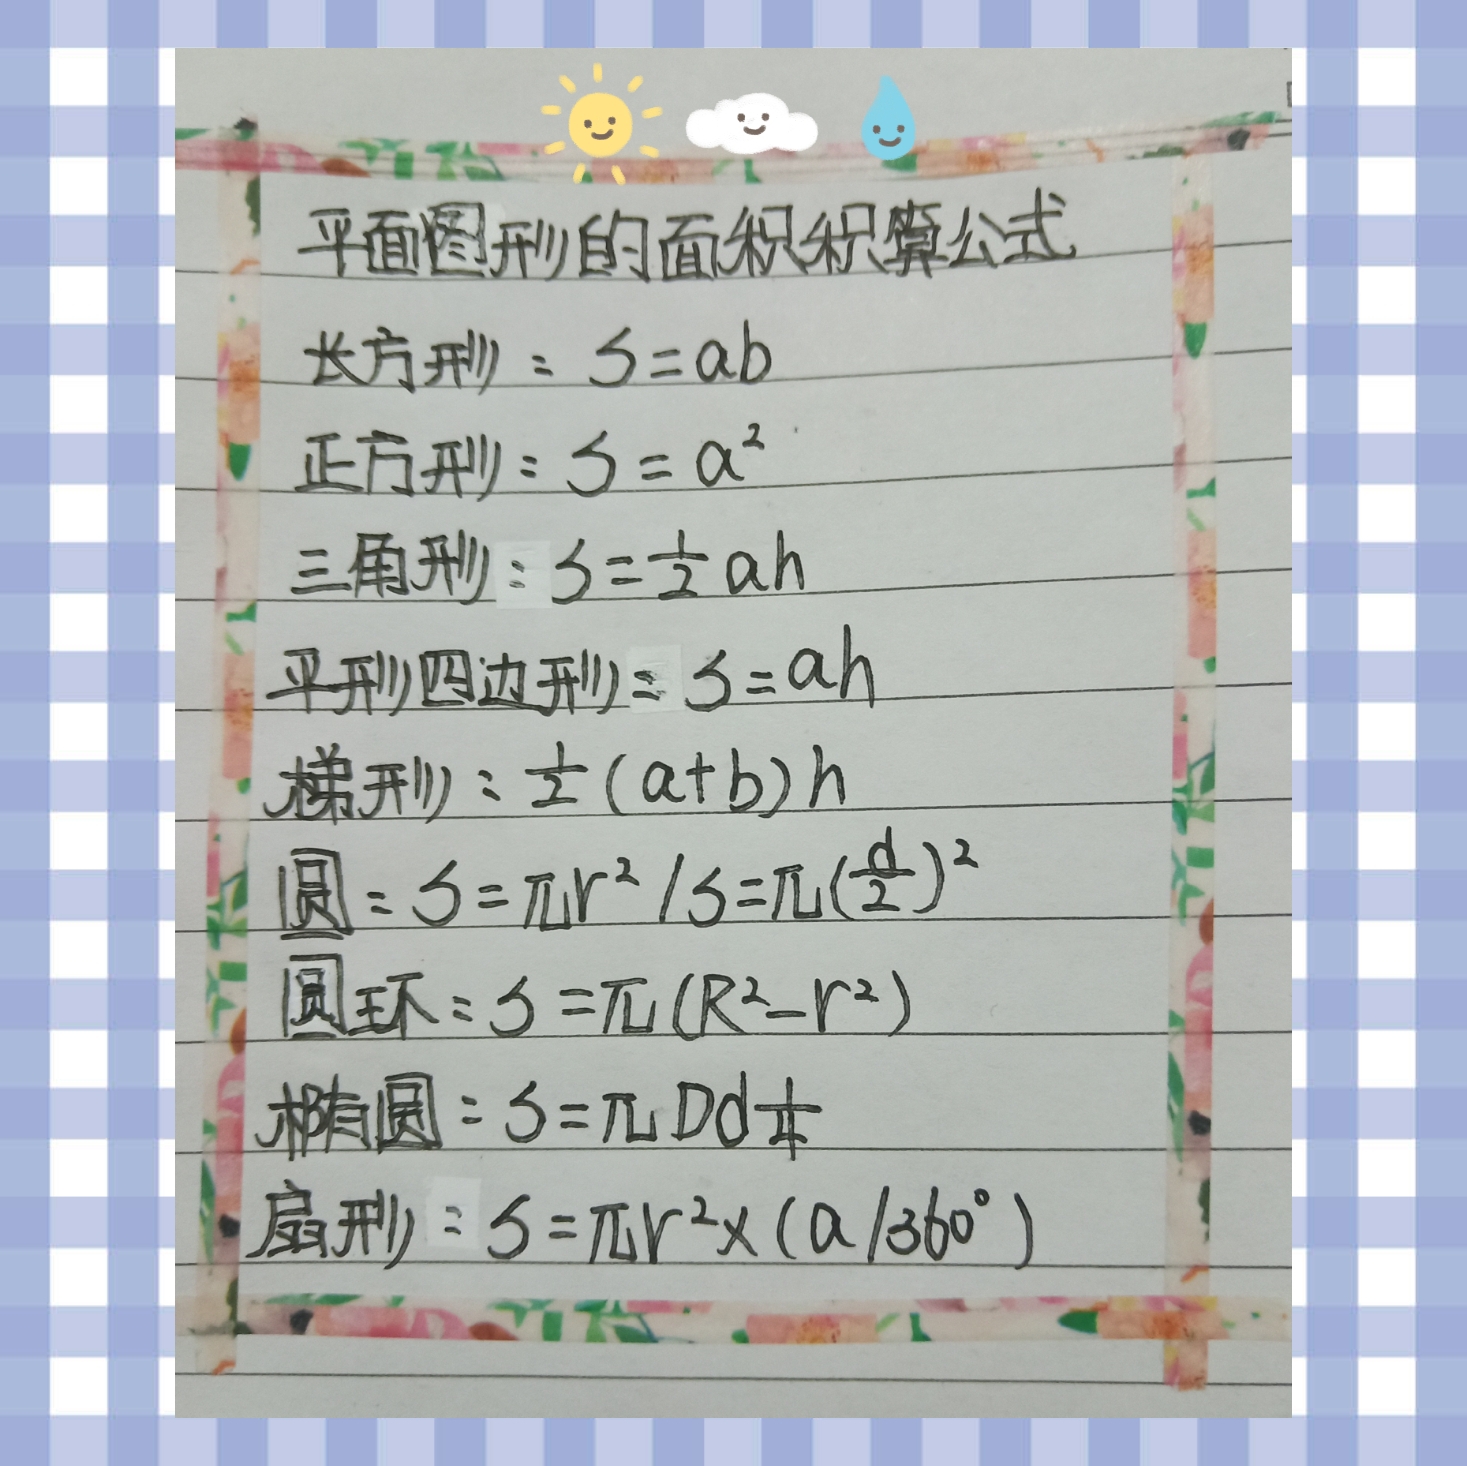 平面图形的面积积算公式
长方形：S=ab
正方形：S=a²
三角形：S=½ah
平形四边形：S=ah
梯形：½(a+b)h
圆：S=πr²/S=π(d/2)²
圆环：S=π(R²-r²)
椭圆：S=πDd¼
扇形：S=πr²×(a/360°)